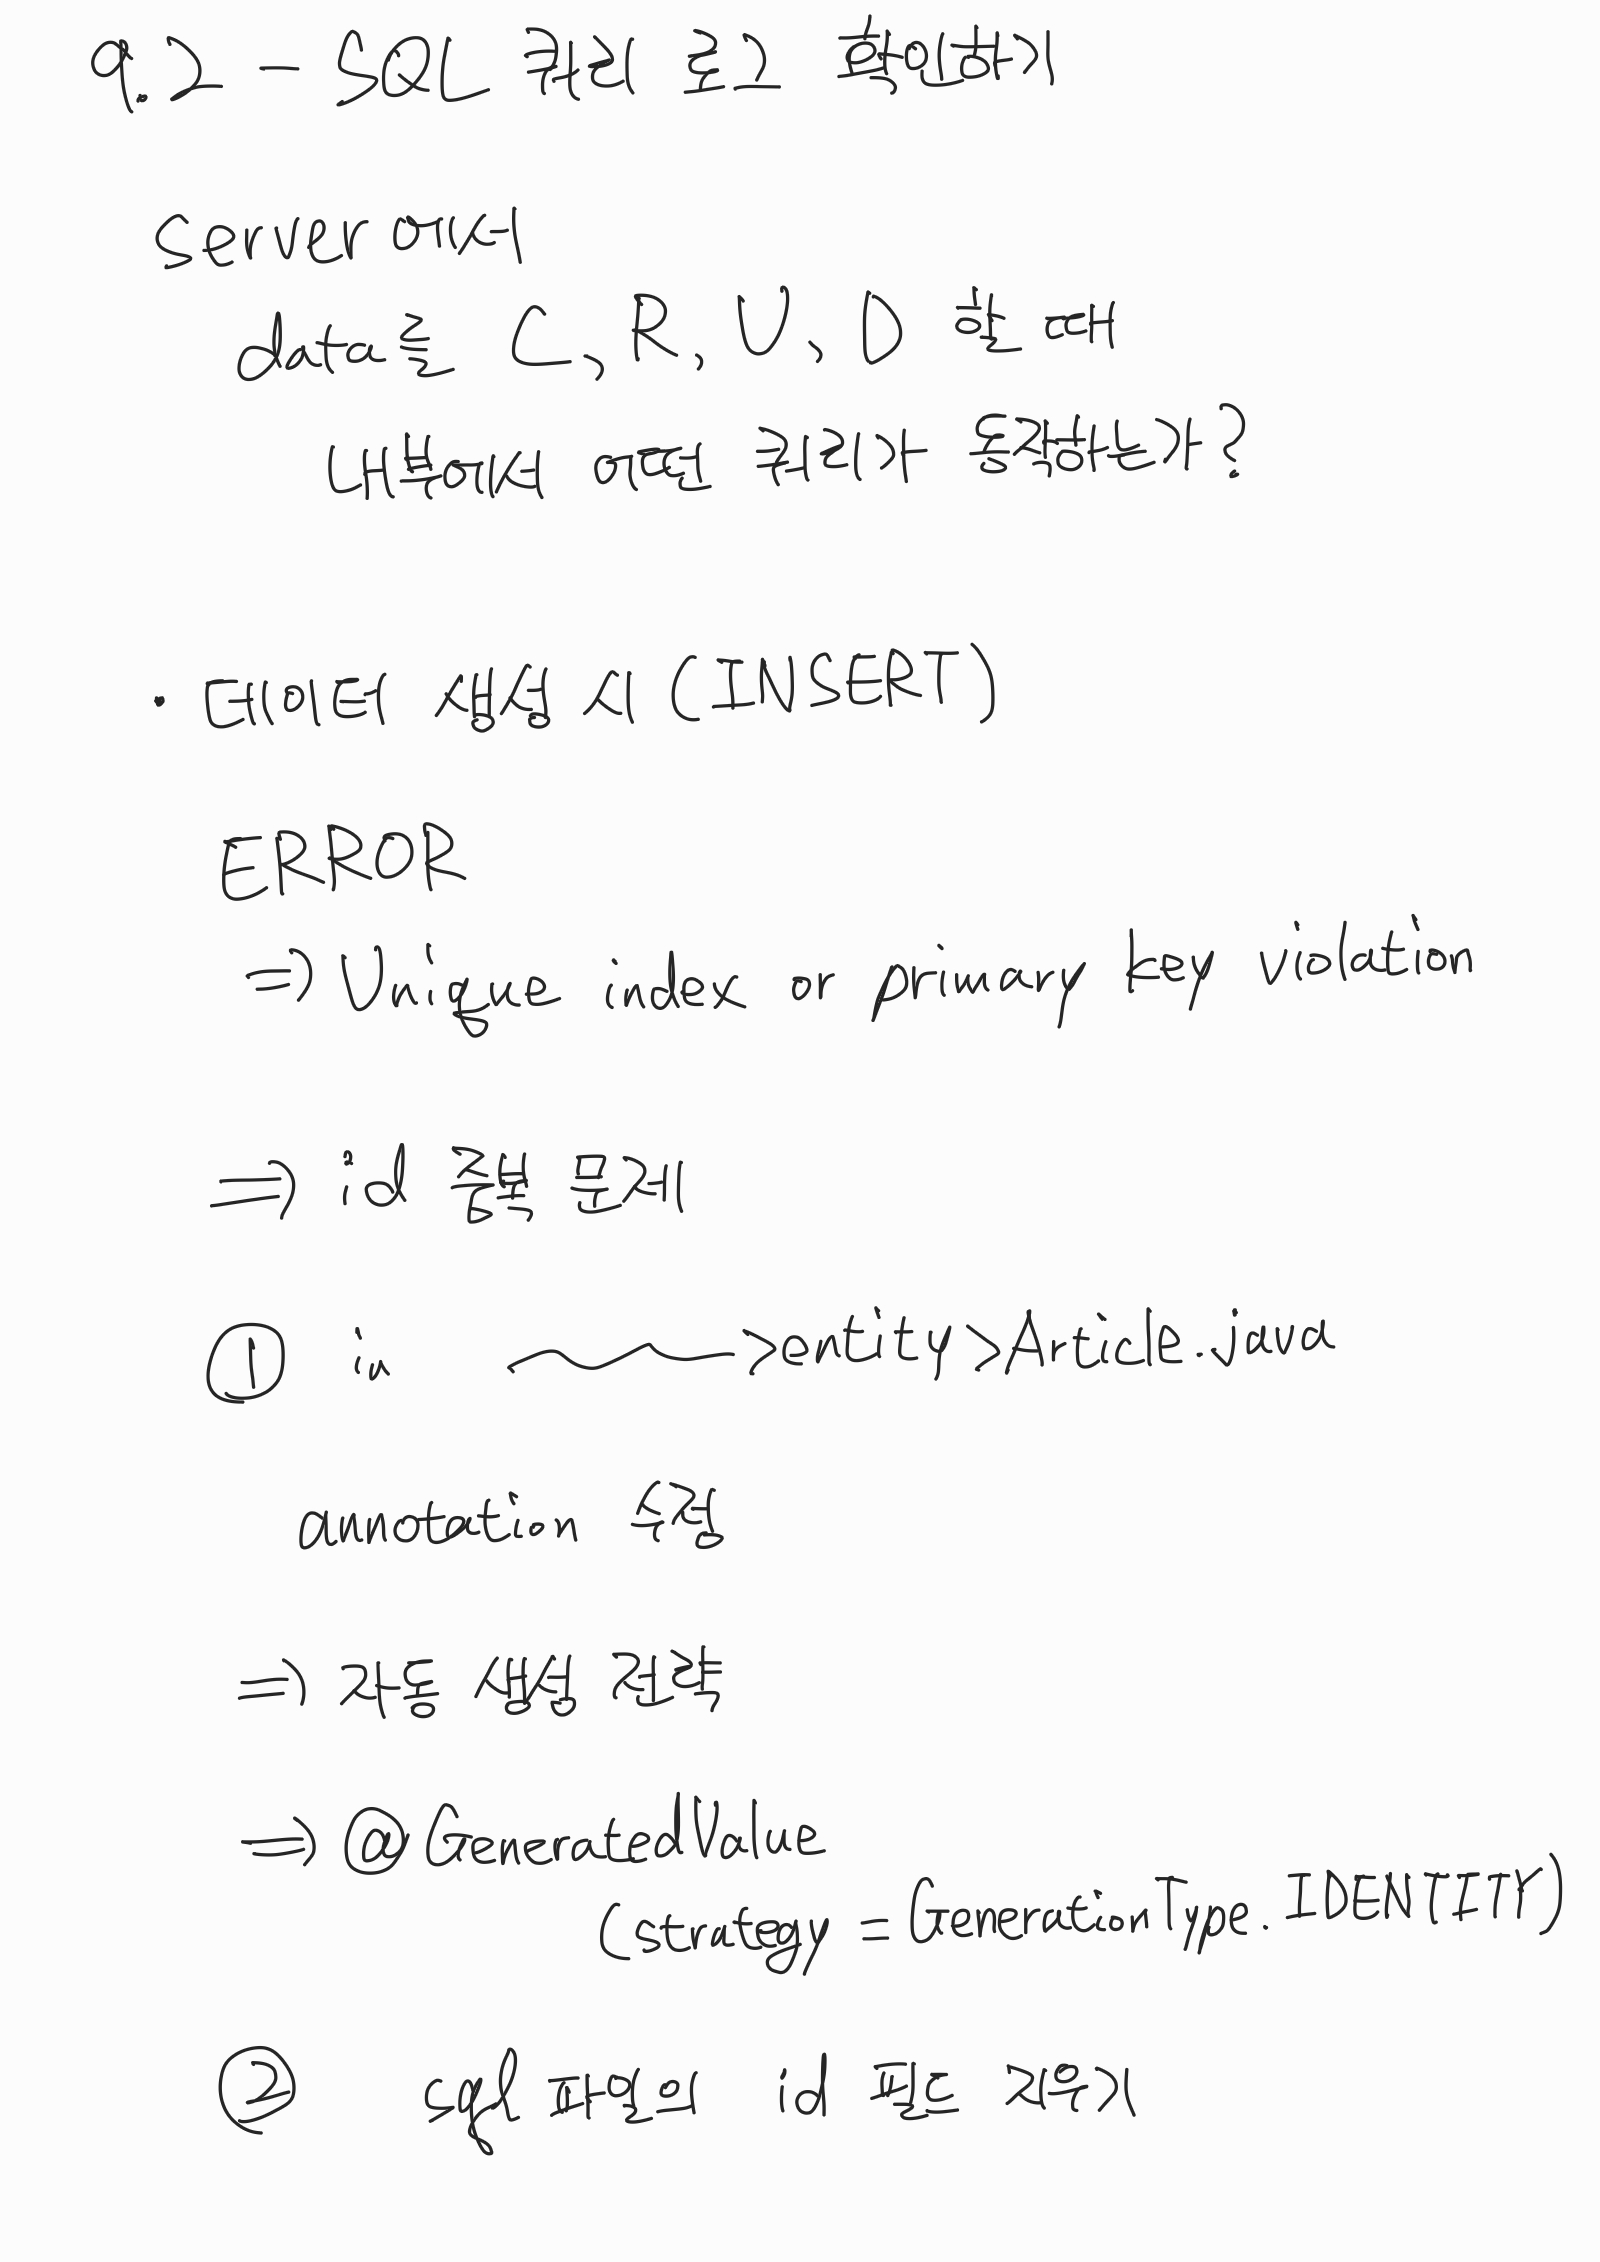 9.2 - SQL 쿼리 로그 확인하기
server에서
data를 C, R, U, D 할 때
내부에서 어떤 쿼리가 동작하는가?
· 데이터 생성 시 (INSERT)
ERROR
⇒ Unique index or primary key violation
⇒ id 중복 문제
① in ~>entity>Article.java
annotation 수정
⇒ 자동 생성 전략
⇒ @GeneratedValue
(strategy = GenerationType.IDENTITY)
② sql 파일의 id 필드 지우기